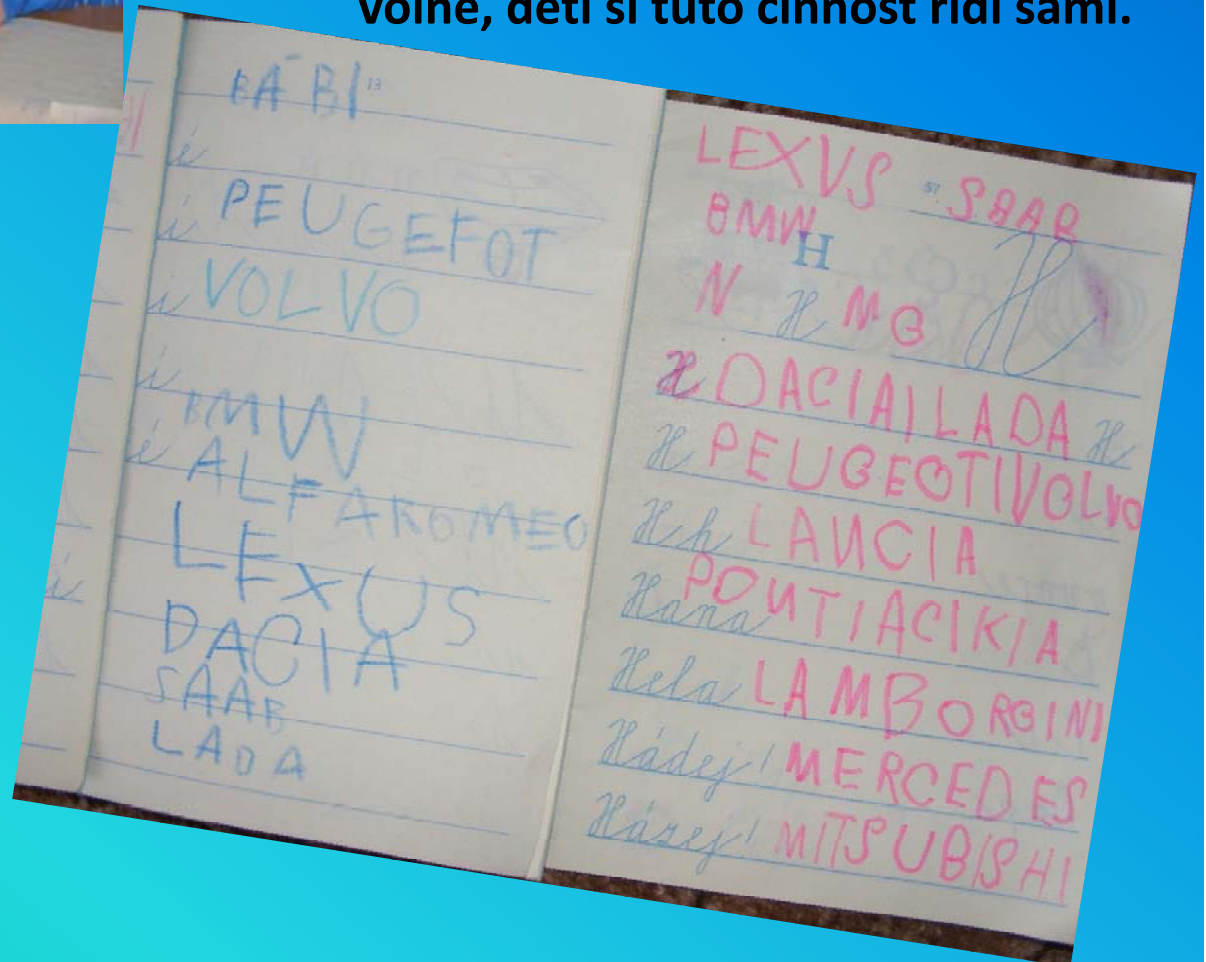 volně, děti si tuto činnost řídí sami.
BÁBI 13
i
PEUGEFOT
i
VOLVO
i
i
BMW
i
ALFAROMEO
LEXUS
DACIA
SAAB
LADA
i
LEXUS 57 SAAB
BMW H
N H MG H
H DACIA|LADA H
H PEUGEOT|VOLVO
H h LANCIA
Hana PONTIAC|KIA
Hela LAMBORGINI
Hádej! MERCEDES
Házej! MITSUBISHI